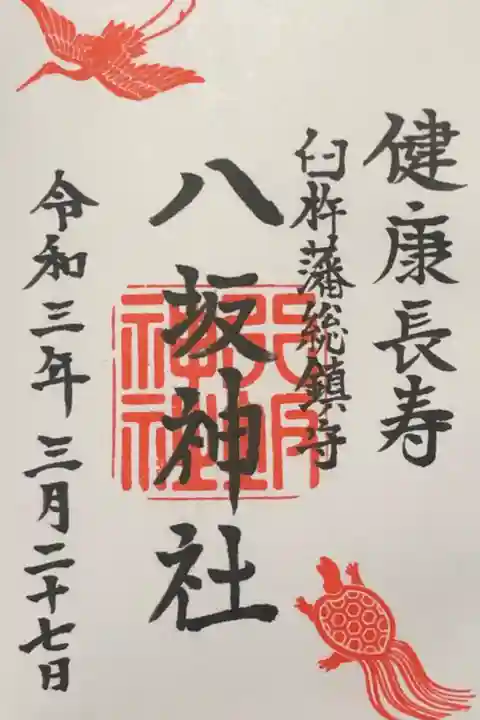 健康長寿
臼杵藩総鎮守
八坂神社
八坂
神社
令和三年 三月二十七日